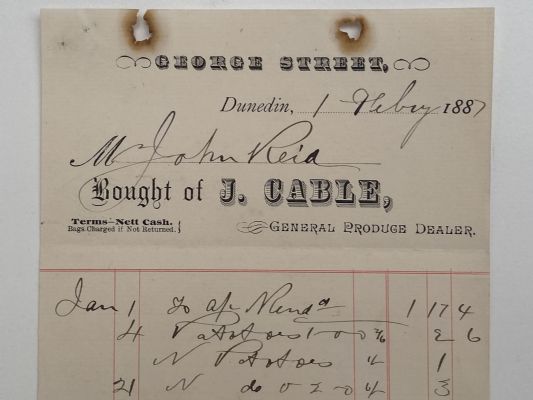 GEORGE STREET,
Dunedin, 1 Febry 1887
Mr John Reid
Bought of J. CABLE,
Terms—Nett Cash.
Bags Charged if Not Returned.
GENERAL PRODUCE DEALER.
Jan 1 To a/c Rend 1 17 4
4 Potatoes 2 6
N Potatoes 1
21 N do 3